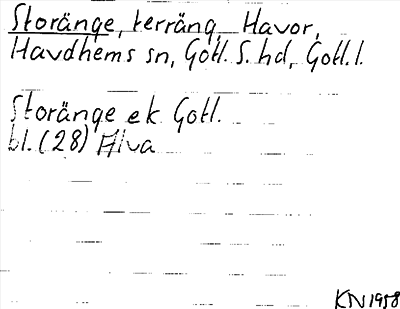 Storänge, terräng, Havor,
Havdhems sn, Gotl. S. hd, Gotl. l.
Storänge ek Gotl.
bl. (28) Alva
KN 1958